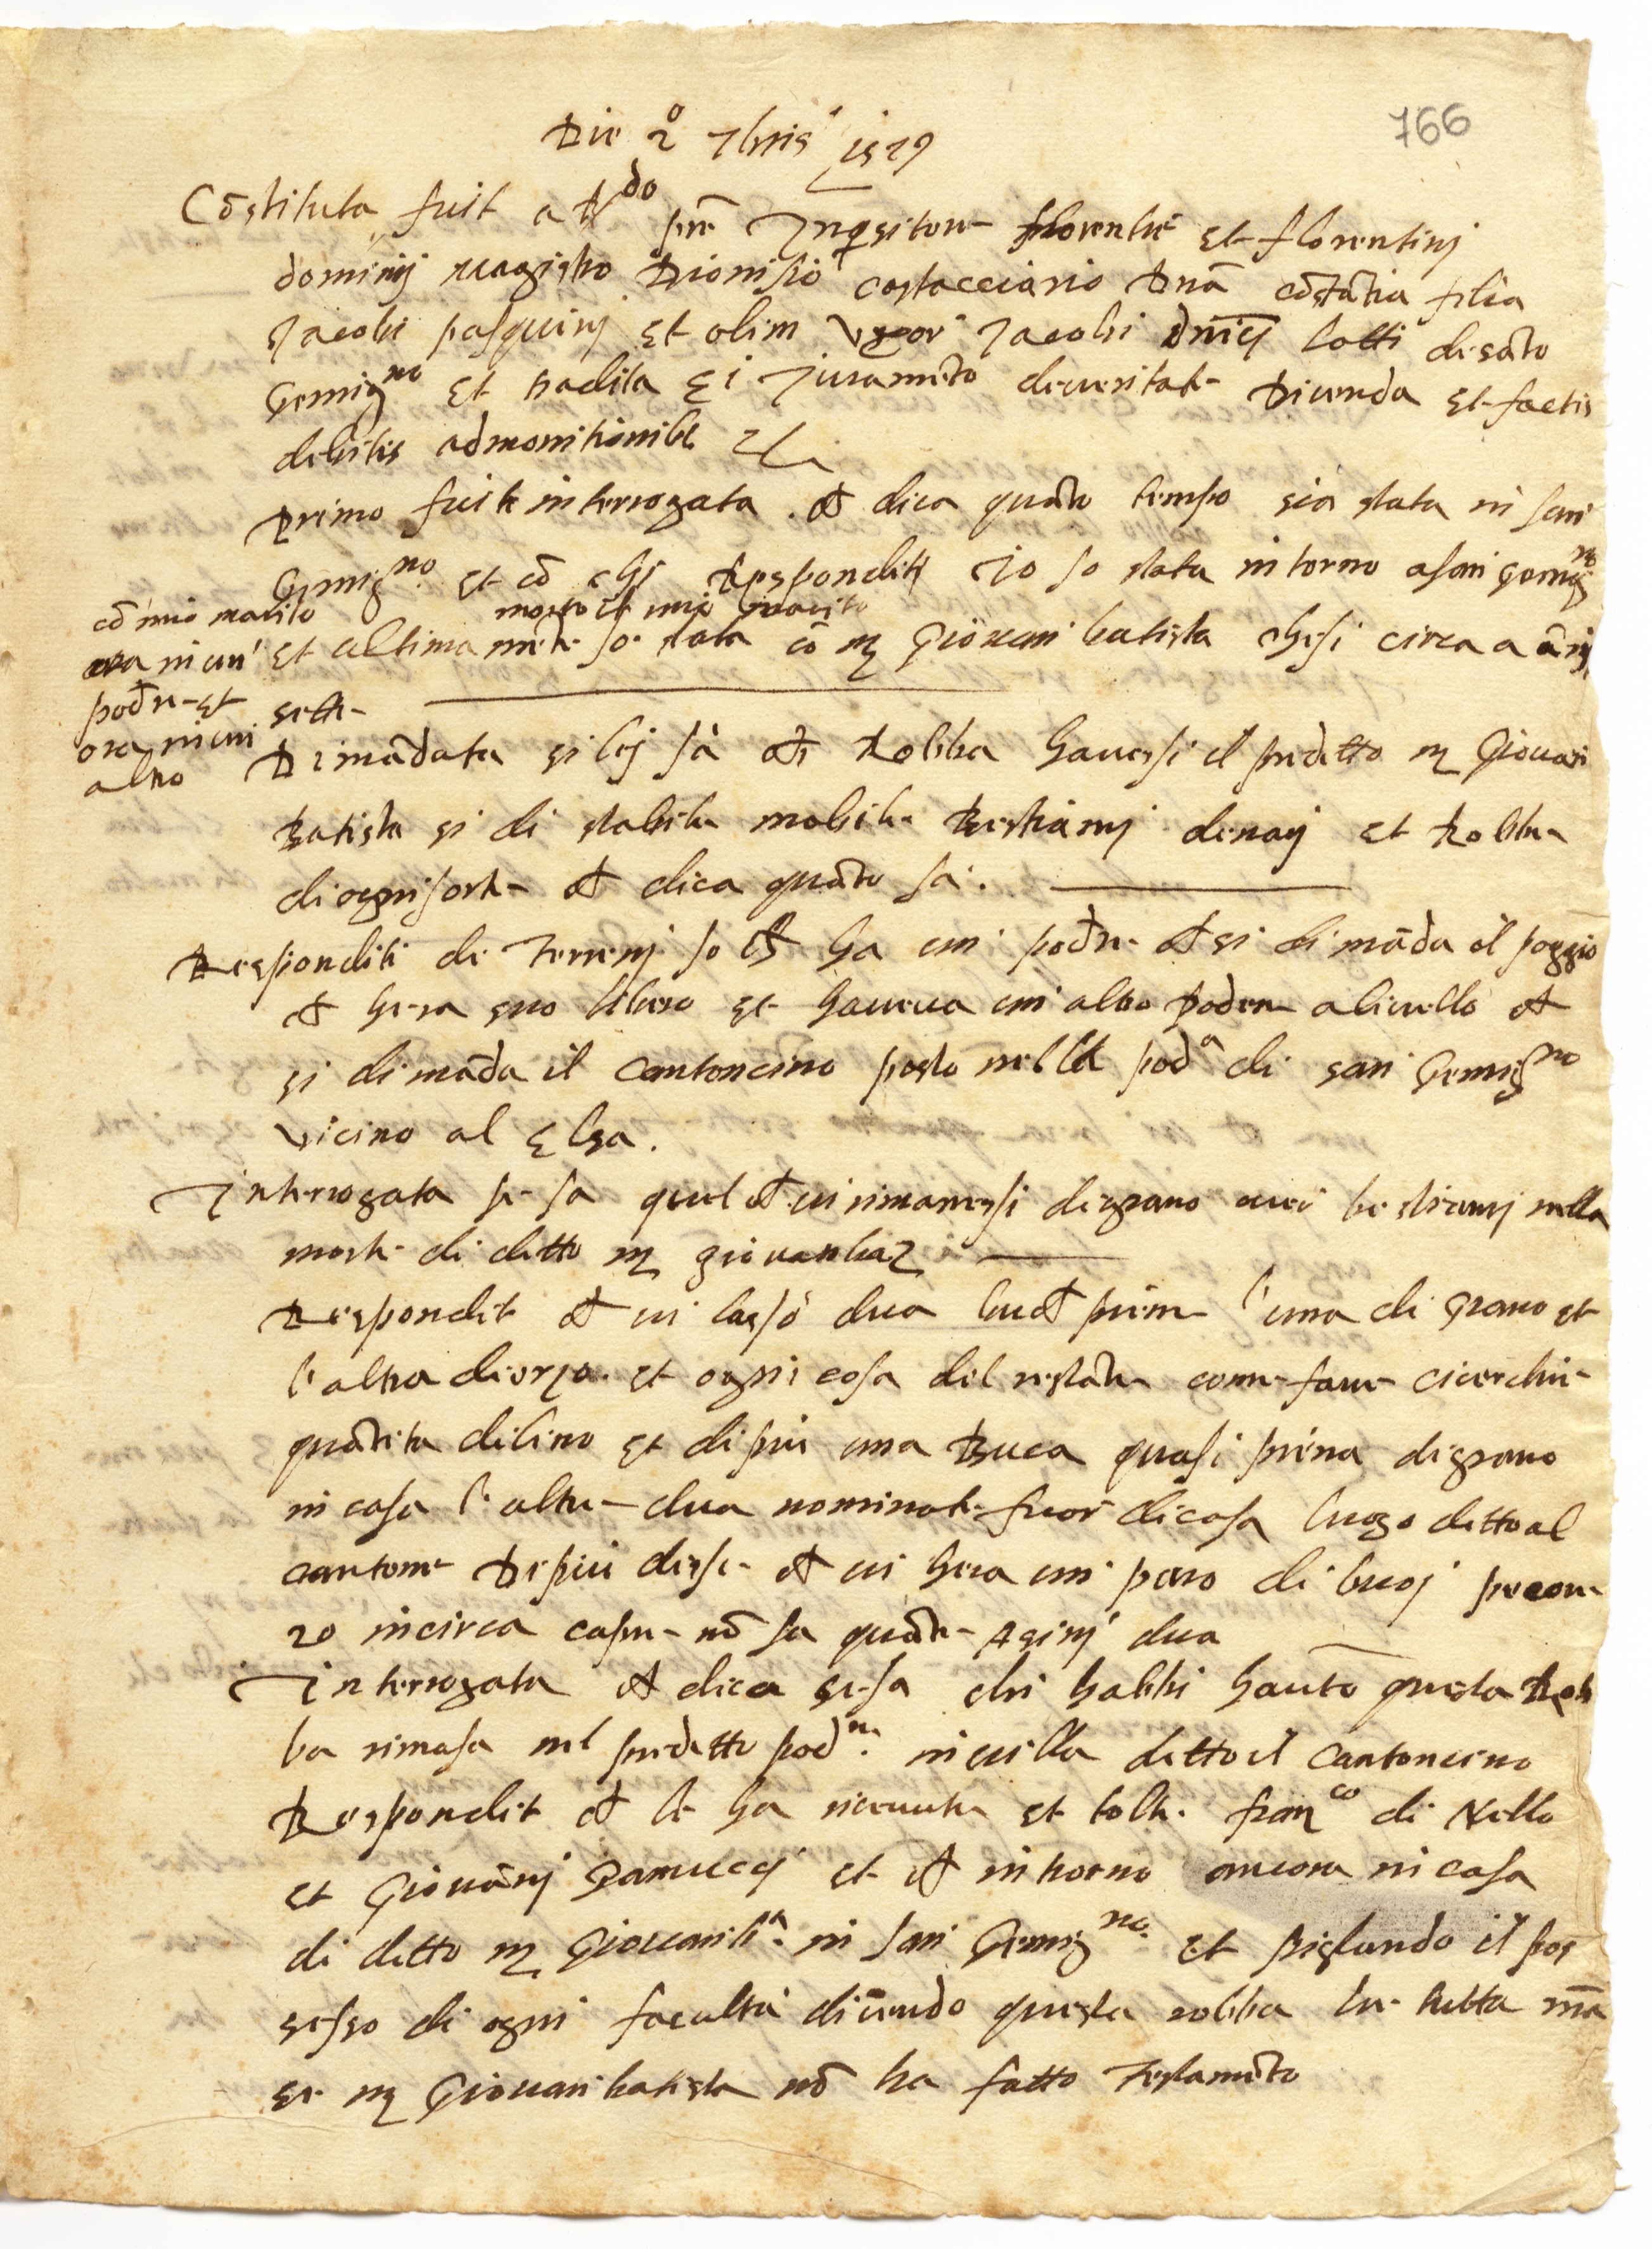 766
Die 2º 7bris 1579
Cōstituta fuit a Rdo pre Inqsitore florentie et florentinj
dominij magistro Dionisio costacciario Dna cōstātia filia
Jacobi pasquinj et olim Uxor Jacobi Dnici lotti di sāto
Gemigno et tradita Ei Juramēto de veritate Dicenda et factis
debitis admonitionibus
Primo fuit interrogata. che dica quāto tempo sia stata in san
Gemigno. et cō chi Respondit Io so stata intorno a san Gemigno
cō mio marito
ora in un
podre et
ora in un
altro
morto il mio marito
et ultimamēte so stata cō m Giovan batista chesi circa a ānj
sette
Dimādata si lej sà che Robba havessi il predetto m Giovan
Batista si di stabile mobile Bestiamj denarj et Robba
di ogni sorte che dica quāto sà.
Respondit di Terrenj so che ha un podre che si dimāda il poggio
che hera suo libero et haveva un altro Podere a livello che
si dimāda il Cantoncino posto nella poda di san Gemigno
vicino al Elsa.
Interrogata se sa quel che vi rimanessi di grano over bestiamj nella
morte di ditto m giovanbaz
Respondit che vi lassò dua buche piene l'una di grano et
l'altra di orzo. et ogni cosa del restāte come fave cicerchie
quātita di lino et di piu una Buca quasi piena di grano
in casa l'altre dua nominate fuor di casa luogo detto al
cantone Di piu disse che vi hera un paro di buoj pecore
20 in circa capre nō sa quāte Asinj dua
Interrogata che dica se sa chi habbi hauto questa Rob
ba rimasa nel predetto podre. in villa detto il Cantoncino
Respondit che le ha ricevute et tolte. franco di Nello
et Giovānj Gamuccj et che introrno ancora in casa
di ditto m Giovanbta. in san Gemigno. et pigliando il pos
sesso di ogni facultà dicendo questa robba tutta mia
se m Giovan batista nō ha fatto Testamēto